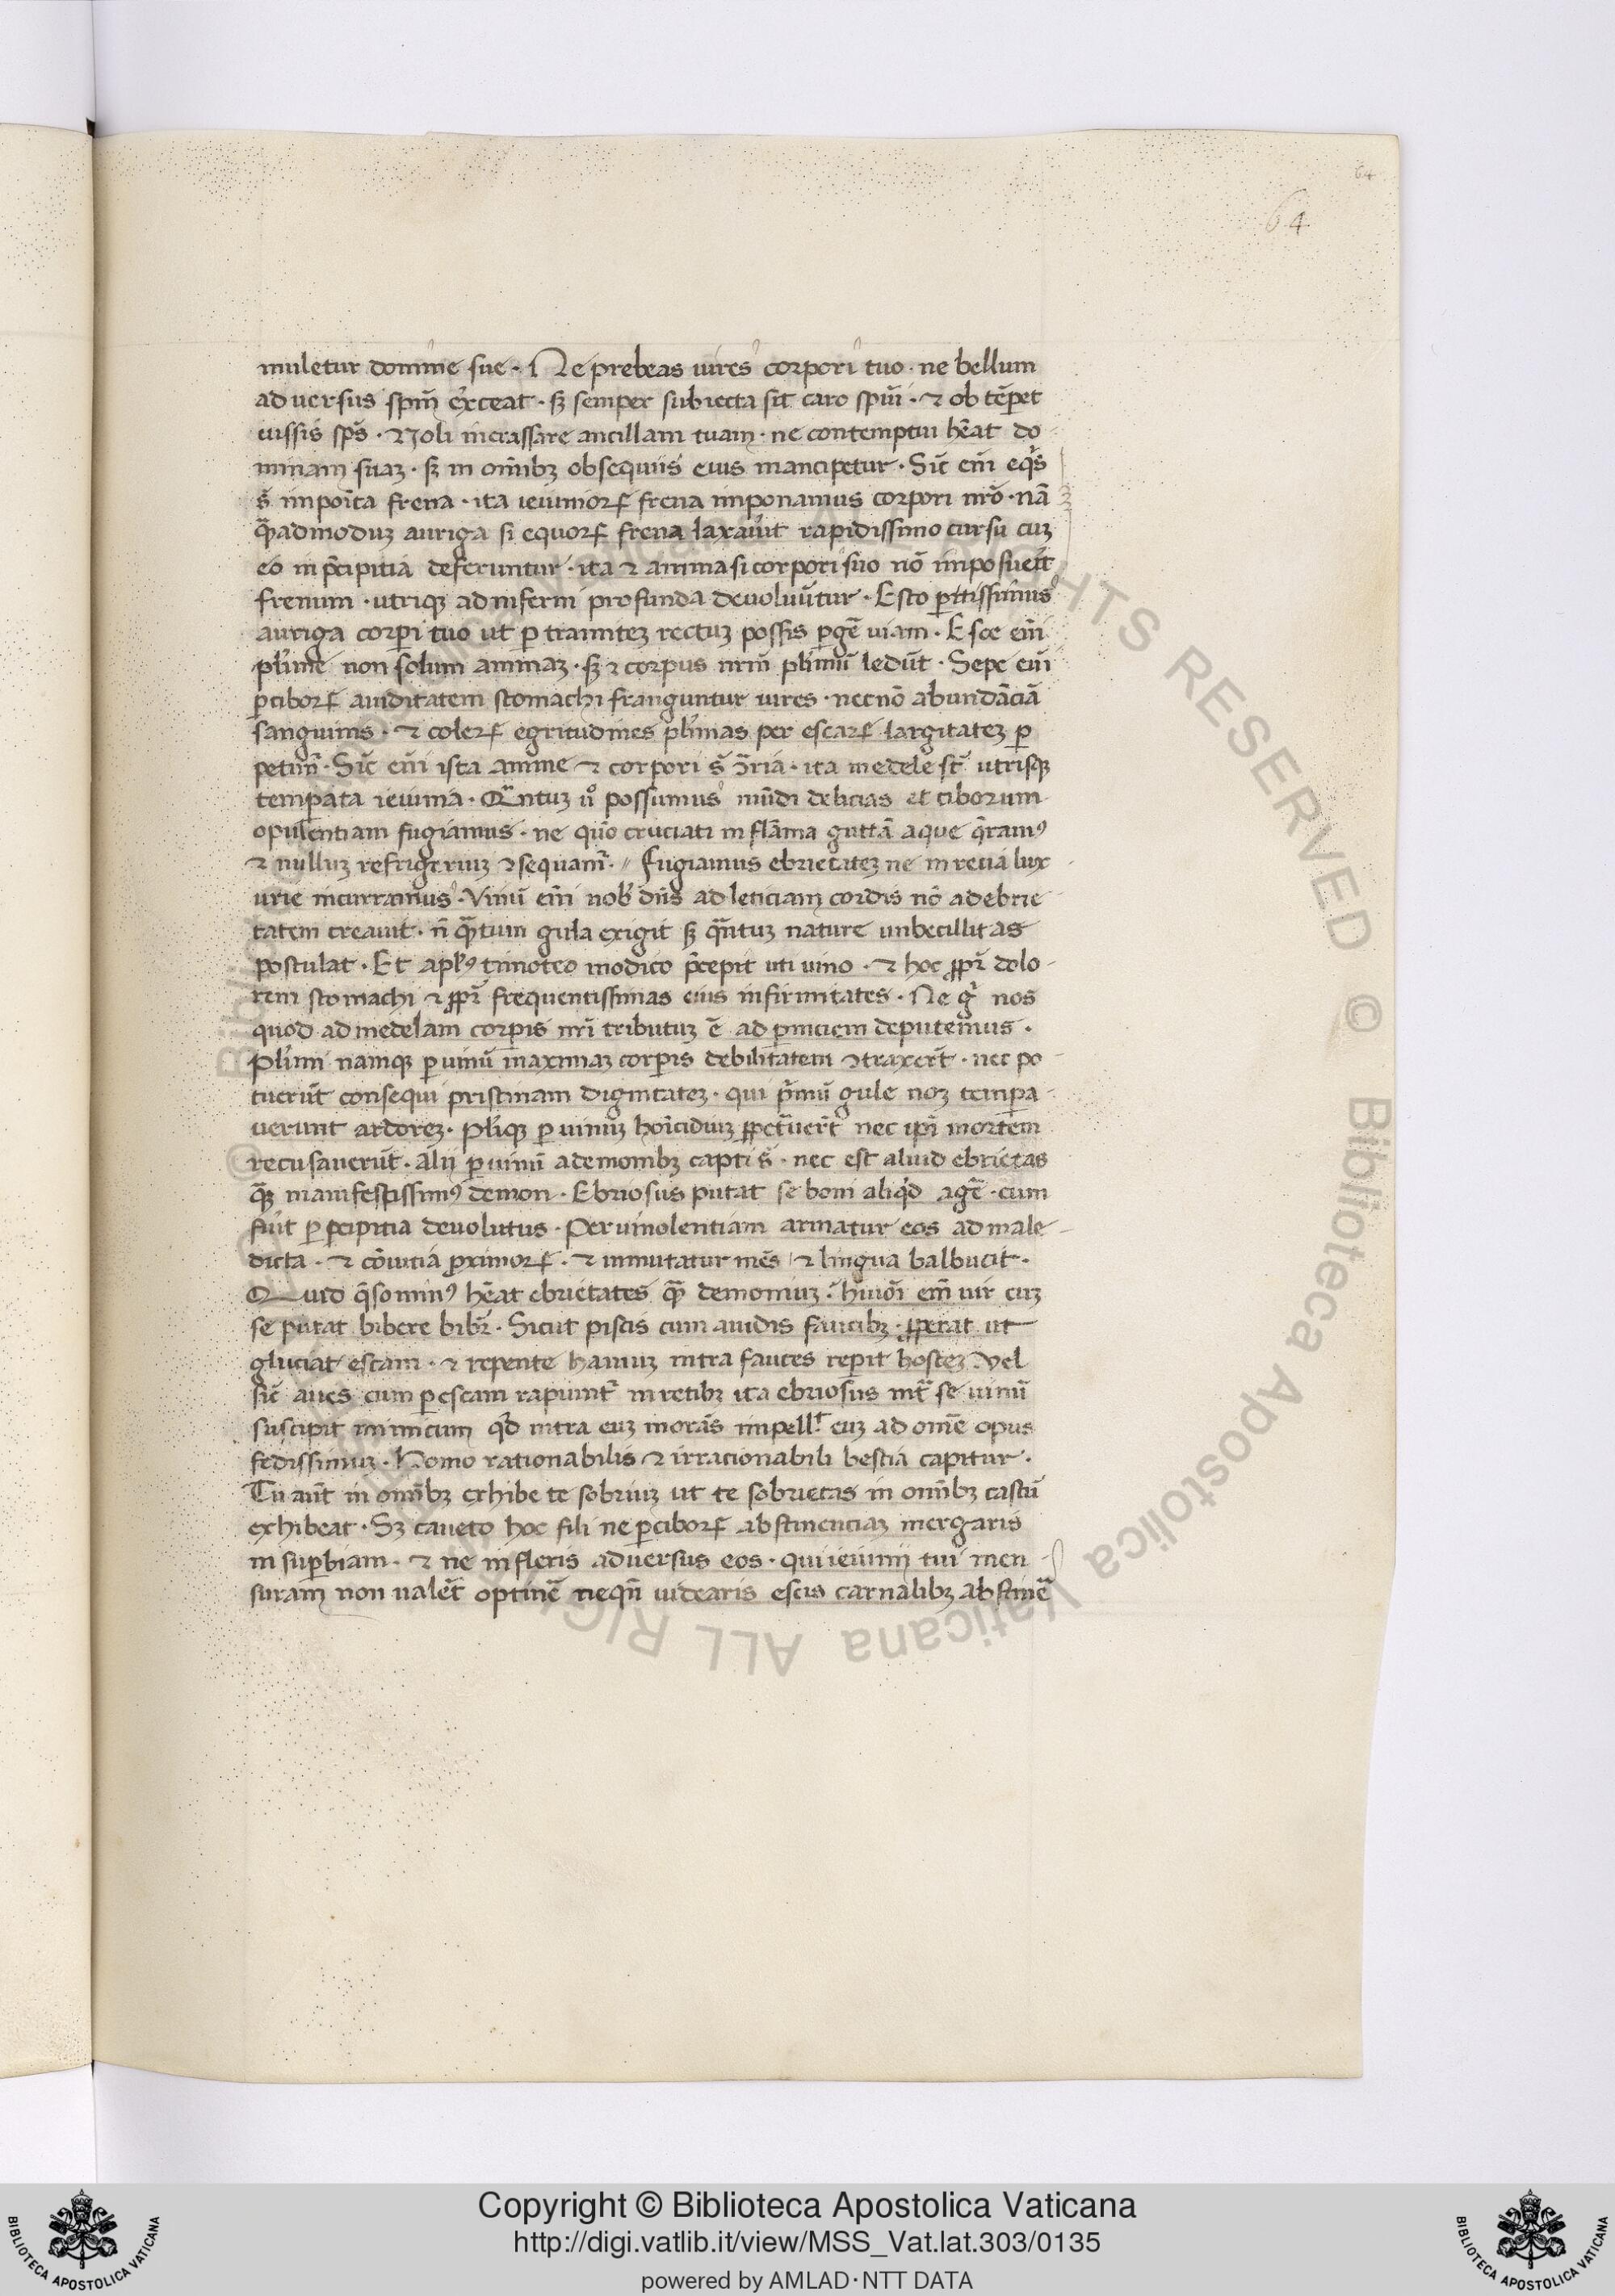 64
64
muletur domine sue · Ne prebeas uires corpori tuo · ne bellum
aduersus spm̄ exerceat · sꝫ semper subiecta sit caro spūi · ⁊ obtēpet
iussis sps̄ · Noli incrassare ancillam tuam · ne contemptui hēat do
minam suaꝫ · sꝫ in omībꝫ obsequiis eius mancipetur · Sic̄ em̄ eqis
s̄t imposita frena · ita ieiuniorꝝ frena imponamus corpori nr̄o · nā
quēadmoduꝫ auriga si equorꝝ frena laxauit rapidissimo cursu cuꝫ
eo in p̄cipitia deferuntur · ita ⁊ anima si corpori suo nō imposueit
frenum · utriqꝫ ad inferni profunda deuoluūtur · Esto p̲itissimus
auriga corp̲i tuo ut p̲ tramiteꝫ rectuꝫ possis p̲gē̄ uiam · Esce em̄
pl̄ime non solum animaꝫ · sꝫ ⁊ corpus nr̄m pl̄imū ledūt · Sepe em̄
p̲ciborꝝ auiditatem stomachi franguntur uires · necnō abundāciā
sanguinis · ⁊ colerꝝ egritudines pl̄imas per escarꝝ largitateꝫ p̲
petim̄ · Sic̄ em̄ ista anime ⁊ corpori s̄t ↄ̄ria · ita medele st̄ utrisqꝫ
temp̲ata ieiunia · Q̄ntuꝫ uº possumus mūdi delicias et ciborum
opulentiam fugiamus · ne qn̄o cruciati in flāma guttā aque q̄ramꝰ
⁊ nulluꝫ refrigeriuꝫ ↄsequam̄ · // Fugiamus ebrietateꝫ ne in retia lux
urie incurramus · Vinū em̄ nob̄ dn̄s ad leticiam cordis nō ad ebrie
tatem creauit · n̄ q̄ntum gula exigit sꝫ q̄ntuꝫ nature inbecillitas
postulat · Et apl̄ꝰ timoteo modico p̄cepit uti uino · ⁊ hoc ꝓpt̄ dolo
rem stomachi ⁊ ꝓpt̄ frequentissimas eius infirmitates · Ne ḡ nos
quod ad medelam corp̲is nr̄i tributuꝫ ē ad p̲niciem deputemus ·
Pl̄imi namqꝫ p̲ uinū maximaꝫ corp̲is debilitatem ↄtraxert̄ · nec po
tuerūt consequi pristinam dignitateꝫ · qui p̄mū gule noꝫ temp̲a
uerunt ardoreꝫ · pl̄iqꝫ p̲ uinuꝫ homicidiuꝫ ꝑpet̄uert̄ nec ip̄i mortem
recusauerūt · Alij p̲ uinū a demonibꝫ capti s̄t · nec est aliud ebrietas
q̄ꝫ manifestissimꝰ demon · Ebriosus putat se boni aliqid agē̄ · cum
fuit p̲ p̄cipitia deuolutus · Per uinolentiam armatur eos ad male
dicta · ⁊ cōuitia proximorꝝ · ⁊ inmutatur mēs ⁊ lingua balbucit ·
Quid q̄so minꝰ hēat ebrietates q̄ꝫ demoniuꝫ · hmōi em̄ uir cuꝫ
se putat bibere bibit̄ · Sicut piscis cum auidis faucibꝫ · properat ut
gluciat escam · ⁊ repente hamuꝫ intra fauces rep̲it hosteꝫ Vel
sic̄ aues cum p̲ escam rapiunt̄ in retibꝫ ita ebriosus int̄ se uinū
suscipit inimicum qd̄ intra euꝫ morās impell̄t euꝫ ad omē opus
fedissimuꝫ · Homo rationabilis ⁊ irracionabili bestia capitur ·
Tu aūt in omībꝫ exhibe te sobriuꝫ ut te sobrietas in omībꝫ castū
exhibeat · Sꝫ caueto hoc fili ne p̲ ciborꝝ abstinenciaꝫ mergaris
in sup̲biam · ⁊ ne infleris aduersus eos · qui ieiunij tui men
suram non ualēt optinē̄ neqn̄ uidearis escis carnalibꝫ abstinē̄
Copyright © Biblioteca Apostolica Vaticana
http://digi.vatlib.it/view/MSS_Vat.lat.303/0135
powered by AMLAD·NTT DATA
BIBLIOTECA APOSTOLICA VATICANA
BIBLIOTECA APOSTOLICA VATICANA
© Biblioteca Apostolica Vaticana ALL RIGHTS RESERVED © Biblioteca Apostolica Vaticana ALL RIGHTS RESERVED